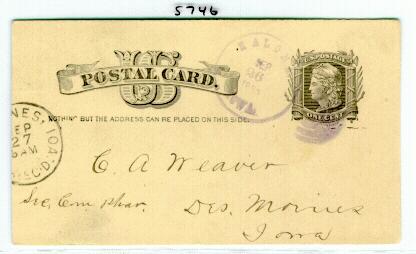 5746
US
POSTAL CARD.
NOTHING BUT THE ADDRESS CAN BE PLACED ON THIS SIDE.
U.S. POSTAGE
ONE CENT
SEP
26
IOWA
NES, IOA.
SEP
27
AM
REC'D.
C. A Weaver
Sec, Com phar.
Des Moines
Iowa